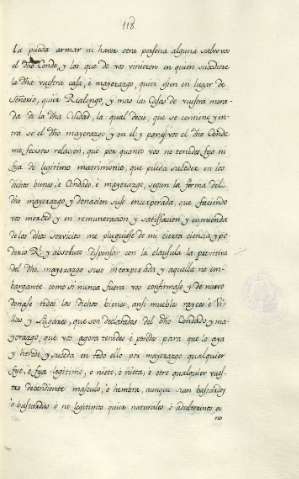 118
La pueda armar ni haver otra persona alguna salvo vos
el dho Conde, y los que de vos vinieren en quien subcediere
la dha vuestra casa, è mayorazgo, quier sien en lugar de
Señorio, quier Realengo, y mas las Casas de vuestra mora
da de la dha Ciudad, la qual decis, que se contiene, y en
tra en el dho mayorazgo y en el y por vos el dho Conde
me fecistes relacion, que por quanto vos no tenedes fijo ni
fija de legitimo matrimonio, que pueda suceder en los
dichos bienes è Condado è mayorazgo segun la forma del
dho mayorazgo y donacion suso encorporada, que faciendo
vos merced y en remuneracion y satisfacion y enmienda
de los dhos servicios me pluguiese de mi cierta ciencia, y po
derio Rl y absoluto dispensar con la clausula
del dho mayorazgo suso incorporada y aquella no em
bargante como si nunca fuera vos confirmase y de nuevo
donase todos los dichos bienes, ansi muebles rayces è
y Lugares, que son del dho Condado y ma
yorazgo, que vos agora tenedes è podades para que lo aya
y herede y suceda en todo ello por mayorazgo qualquier
fijo, è fija legitimo, è nieto, è nieta, è otro qualquier vues
tro descendiente masculo, è hembra, aunque sean bastardos
è bastardas è no legitimos quier naturales è adulterinos, è